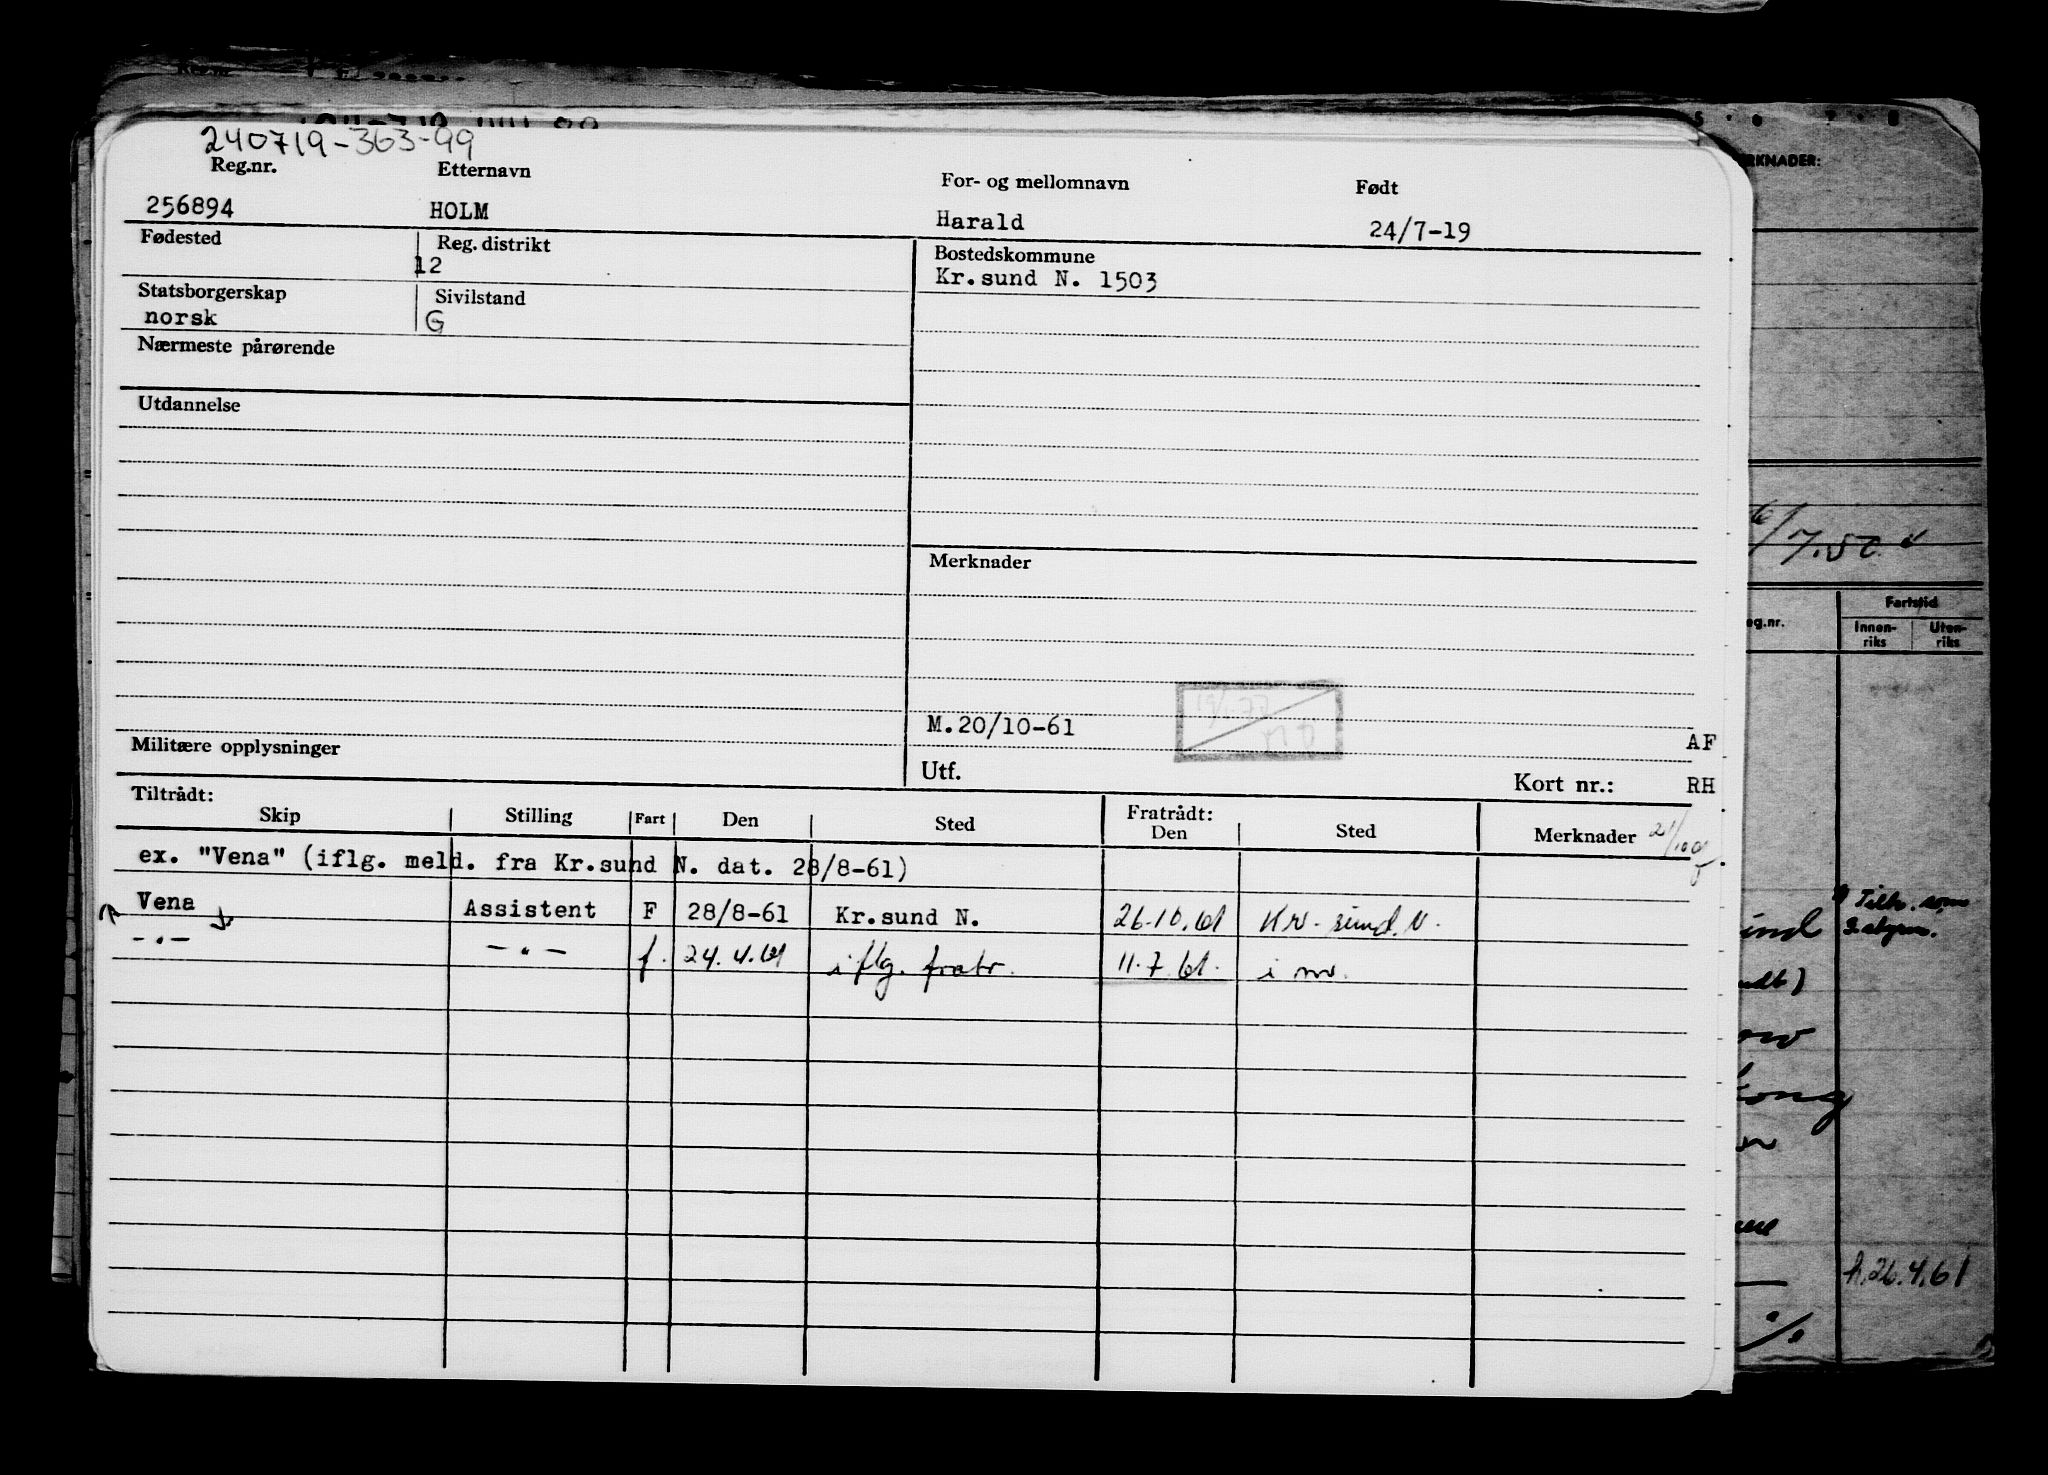 240719-363-99
Reg.nr. Etternavn For- og mellomnavn Født
256894 HOLM Harald 24/7-19
Fødested Reg. distrikt Bostedskommune
12 Kr.sund N. 1503
Statsborgerskap Sivilstand
norsk G
Nærmeste pårørende
Utdannelse
Merknader
M.20/10-61 AF
Militære opplysninger Utf. Kort nr.: RH
Tiltrådt: Fratrådt:
Skip Stilling Fart Den Sted Den Sted Merknader
ex. "Vena" (iflg. meld. fra Kr.sund N. dat. 28/8-61)
Vena Assistent F 28/8-61 Kr.sund N. 26.10.61 Kr.sund.N.
-"- -"- f. 24.4.61 iflg. fratr. 11.7.61. i nv.
RKNADER:
7.50
Fartstid
eg.nr. Innen-riks Uten-riks
Tiltr. som
3. styrm.
h.26.4.61